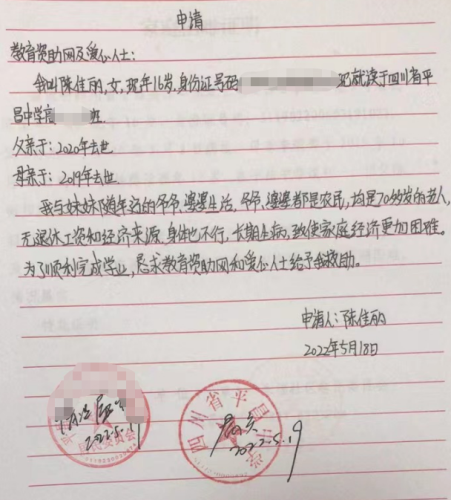 申请
教育资助网及爱心人士:
我叫陈佳丽,女,现年16岁,身份证号码 现就读于四川省平
昌中学高 班
父亲于:2020年去世
母亲于:2019年去世
我与妹妹随年迈的爷爷、婆婆生活,爷爷、婆婆都是农民,均是70多岁的老人,
无退休工资和经济来源,身体也不行,长期生病,致使家庭经济更加困难。
为了顺利完成学业,恳求教育资助网和爱心人士给予我救助。
申请人:陈佳丽
2022年5月18日
情况属实
2022.5.19
四川省平昌中学
属实
2022.5.19